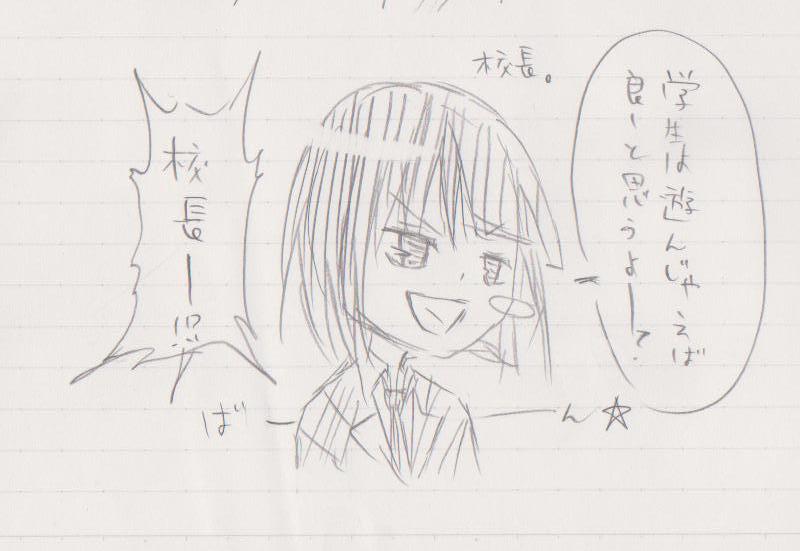 校長。
学生は遊んじゃえば
良ーと思うよーて.
校長ー!!?
ば ー ー ん☆